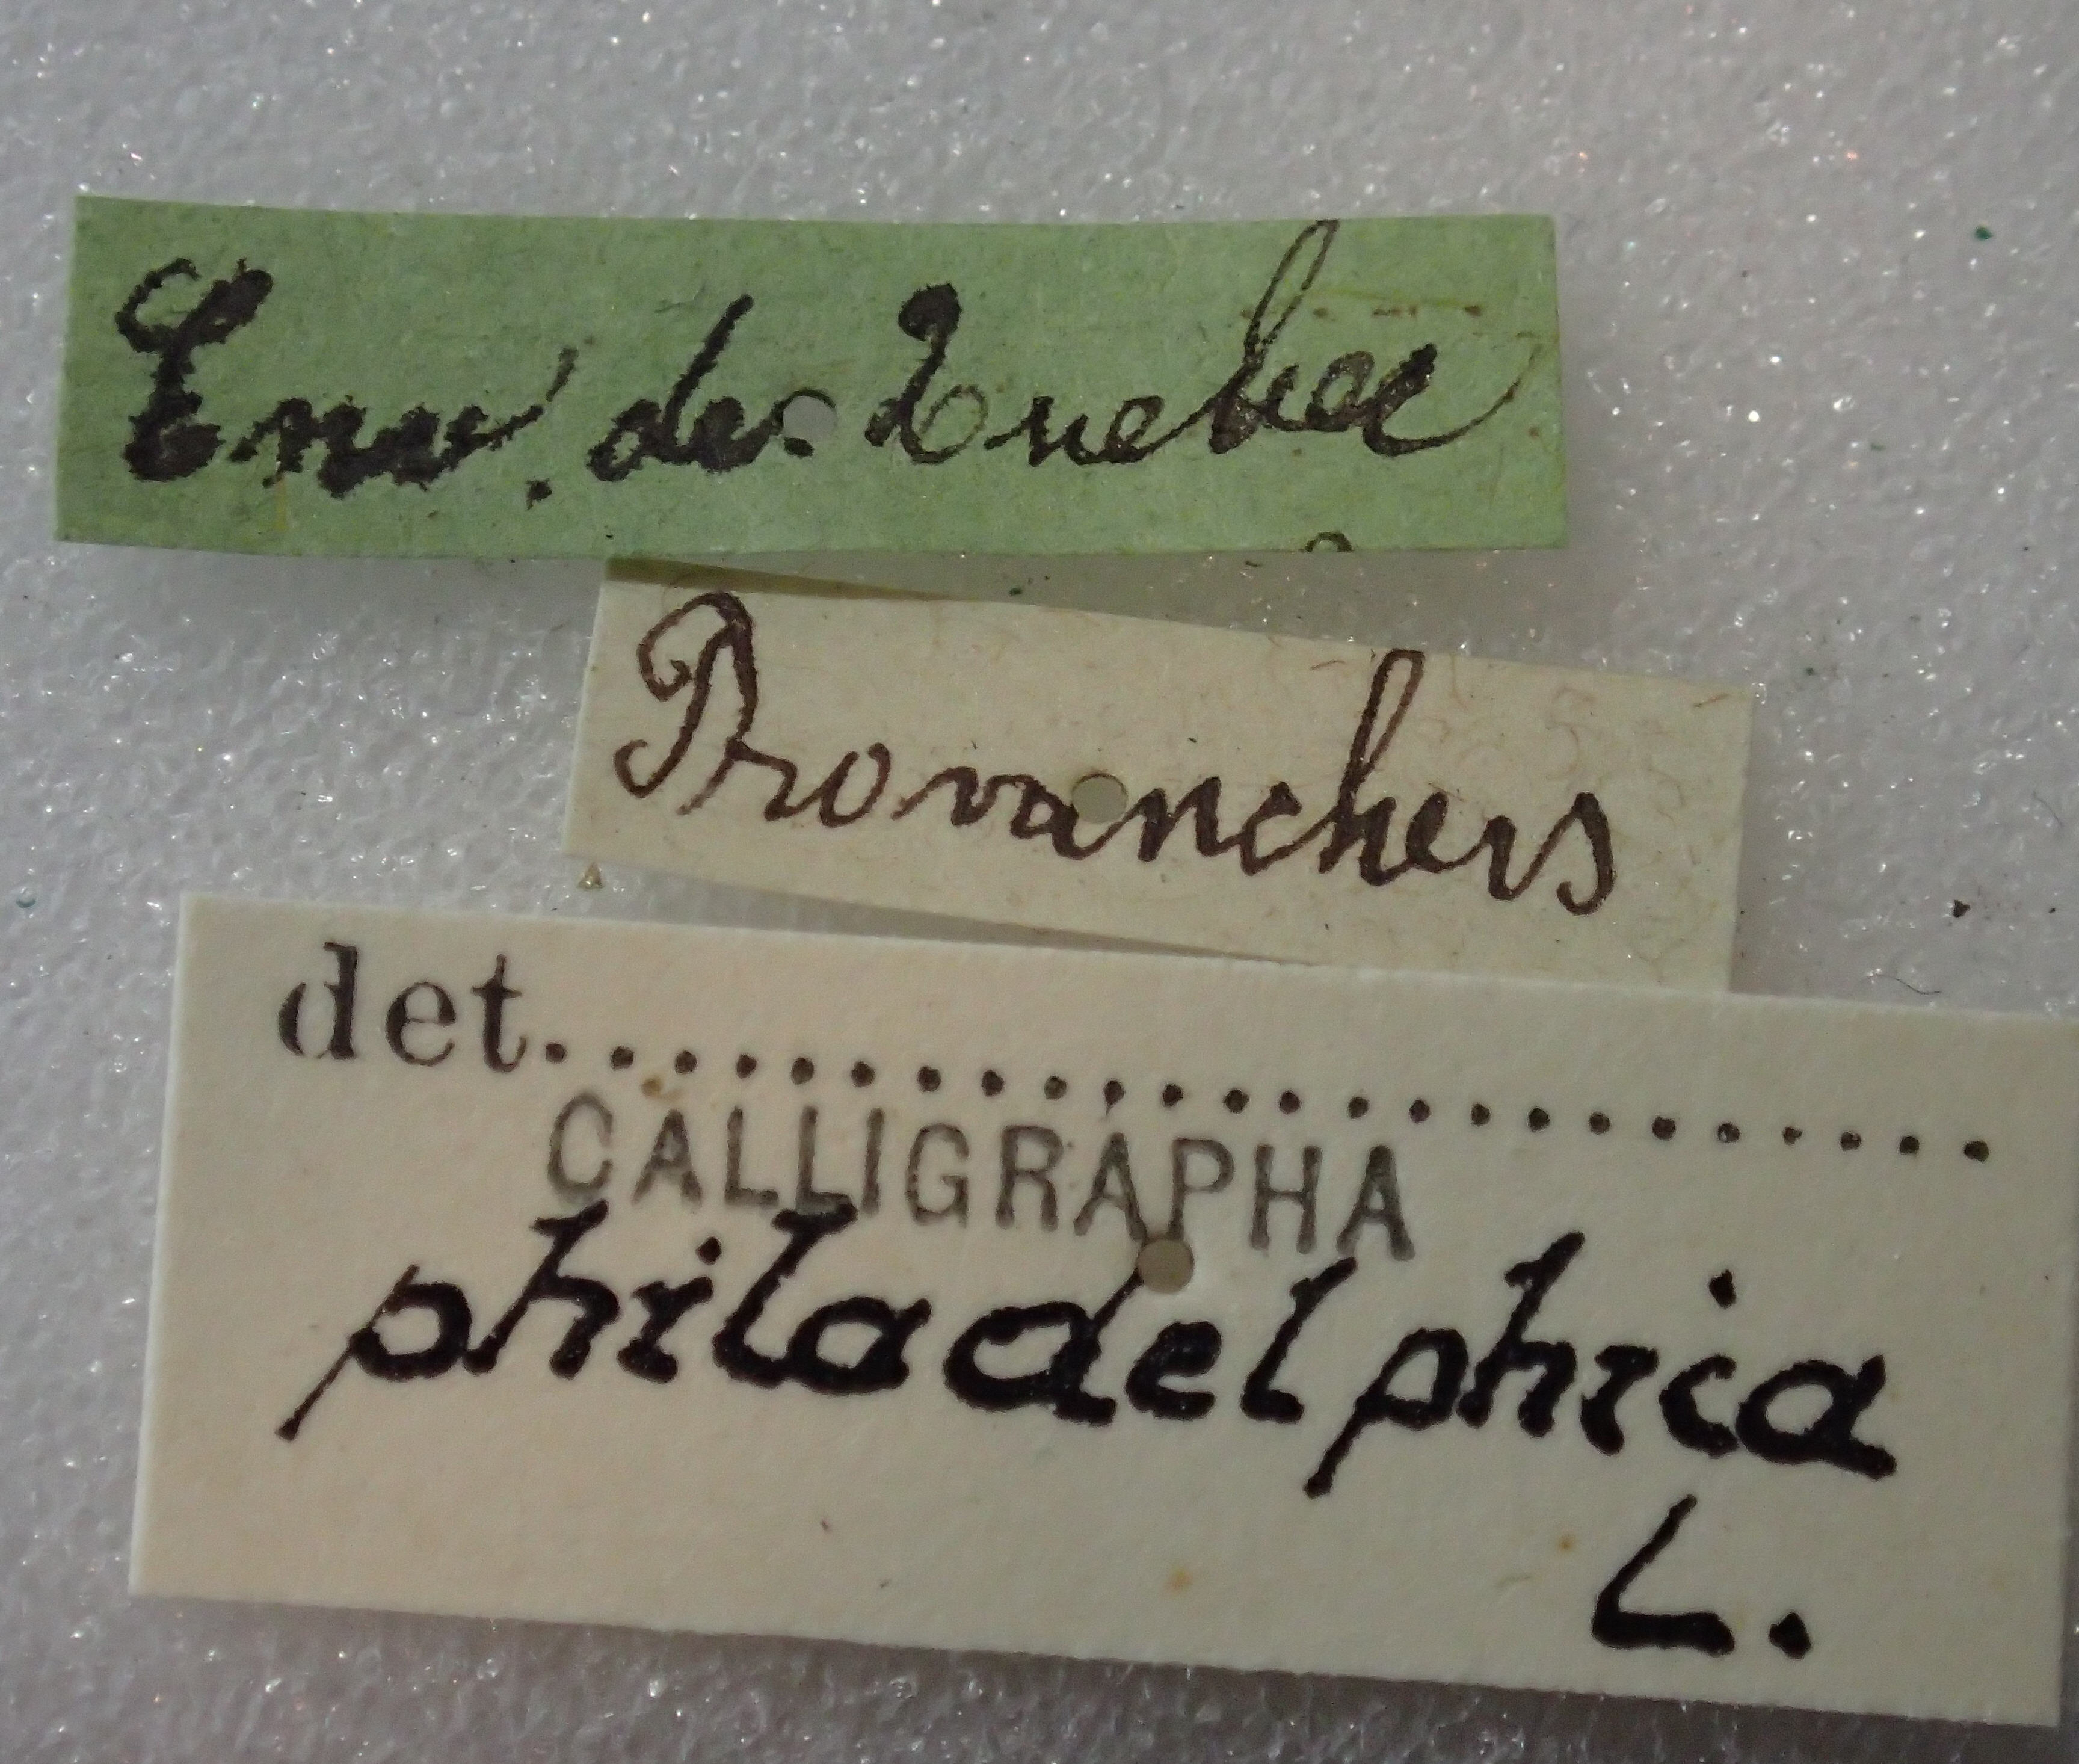 Env. de Quebec
Provanchers
det.
CALLIGRAPHA
philadelphica
L.